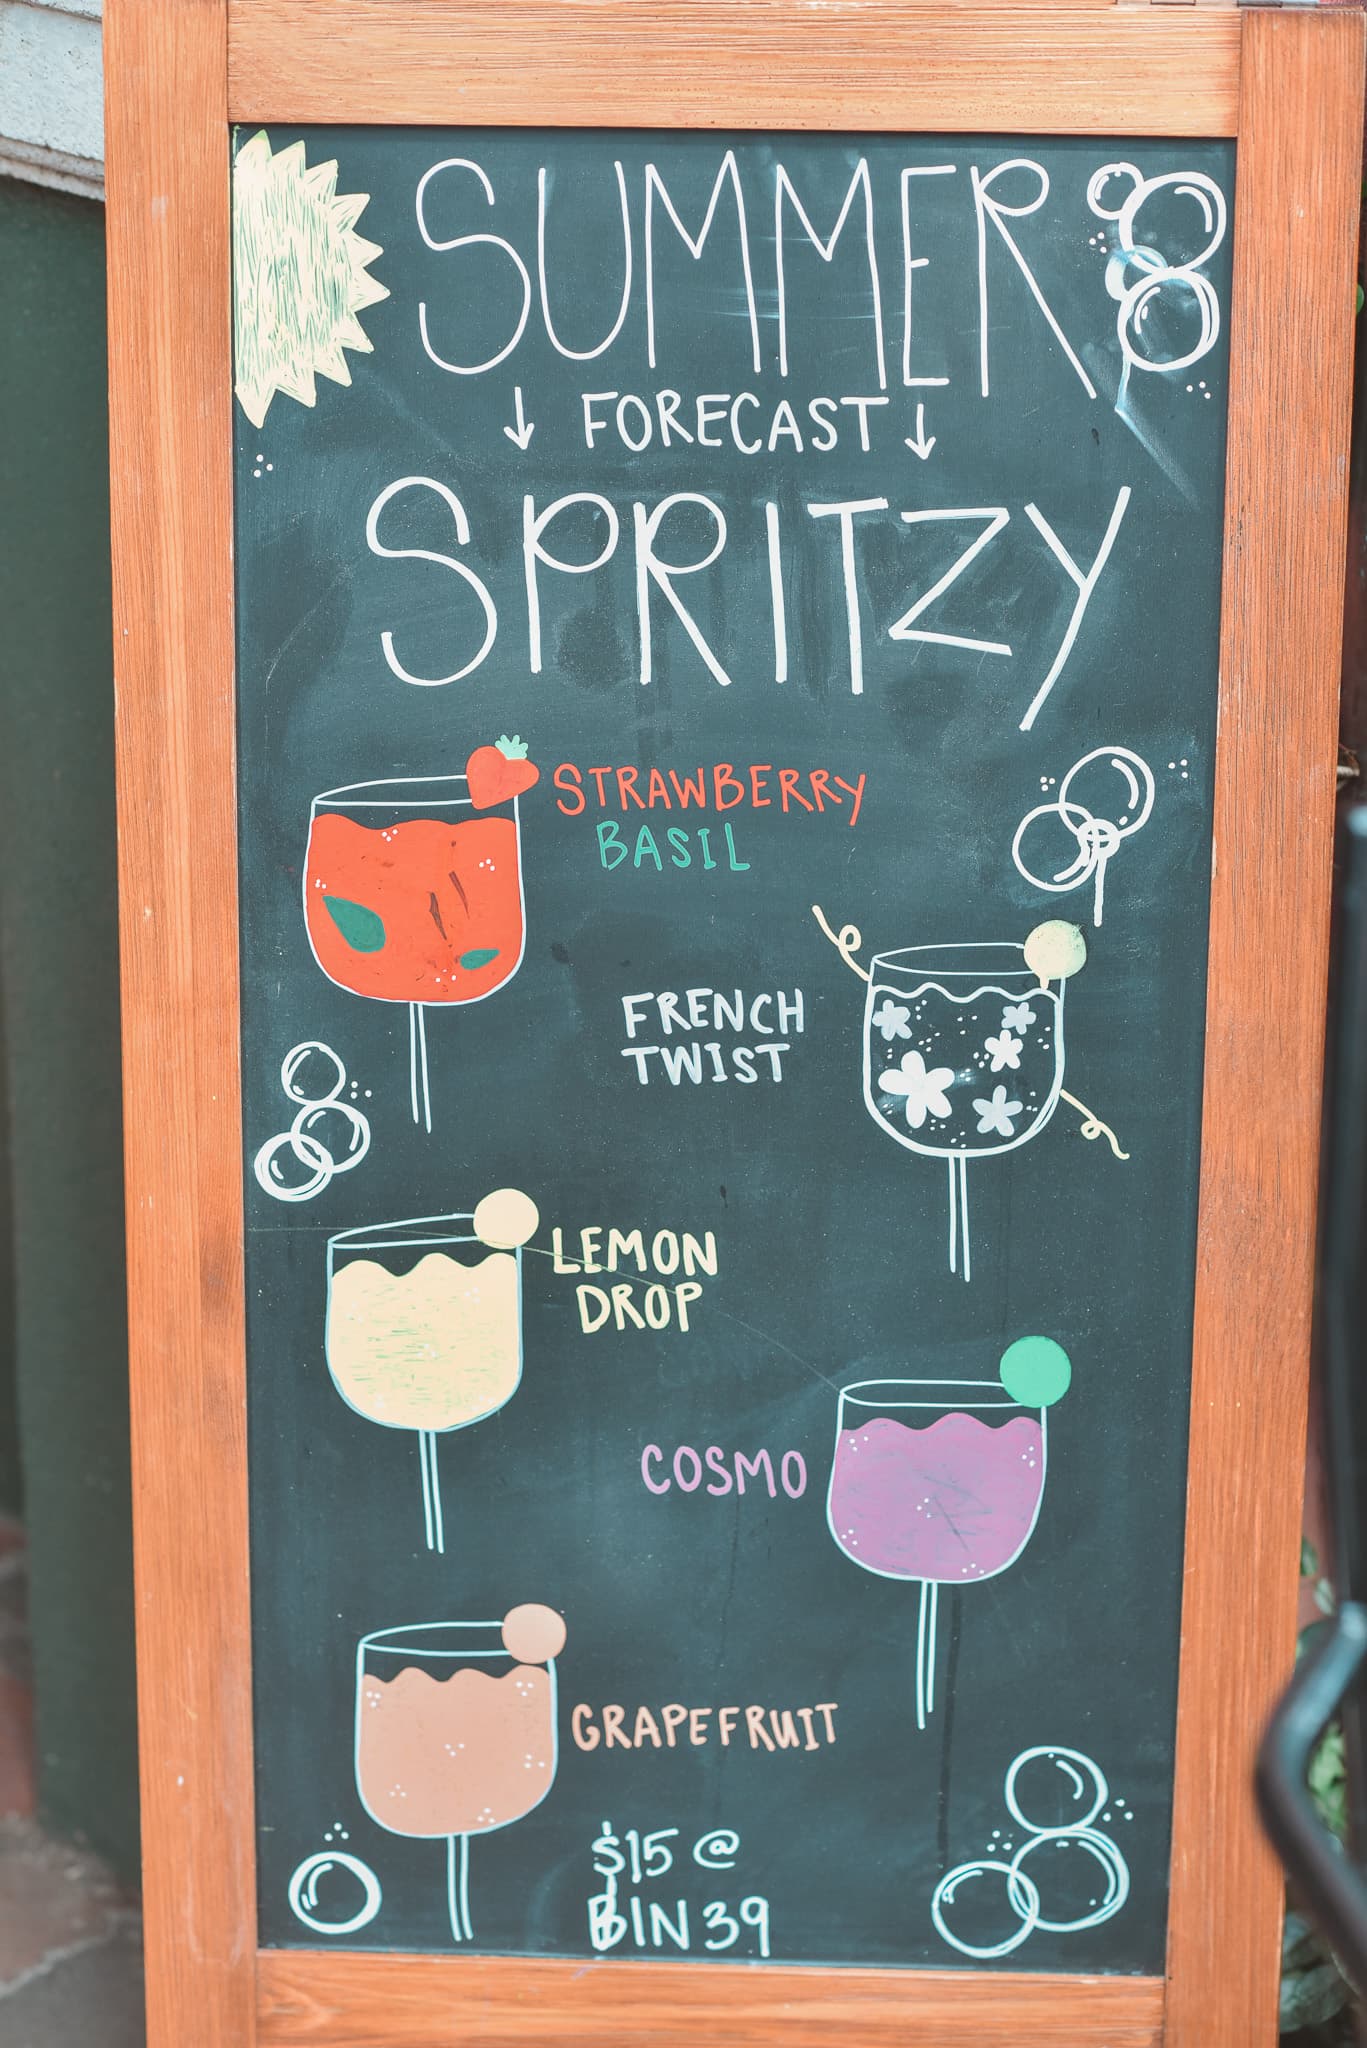 SUMMER
↓ FORECAST ↓
SPRITZY
STRAWBERRY
BASIL
FRENCH
TWIST
LEMON
DROP
COSMO
GRAPEFRUIT
$15 @
BIN 39